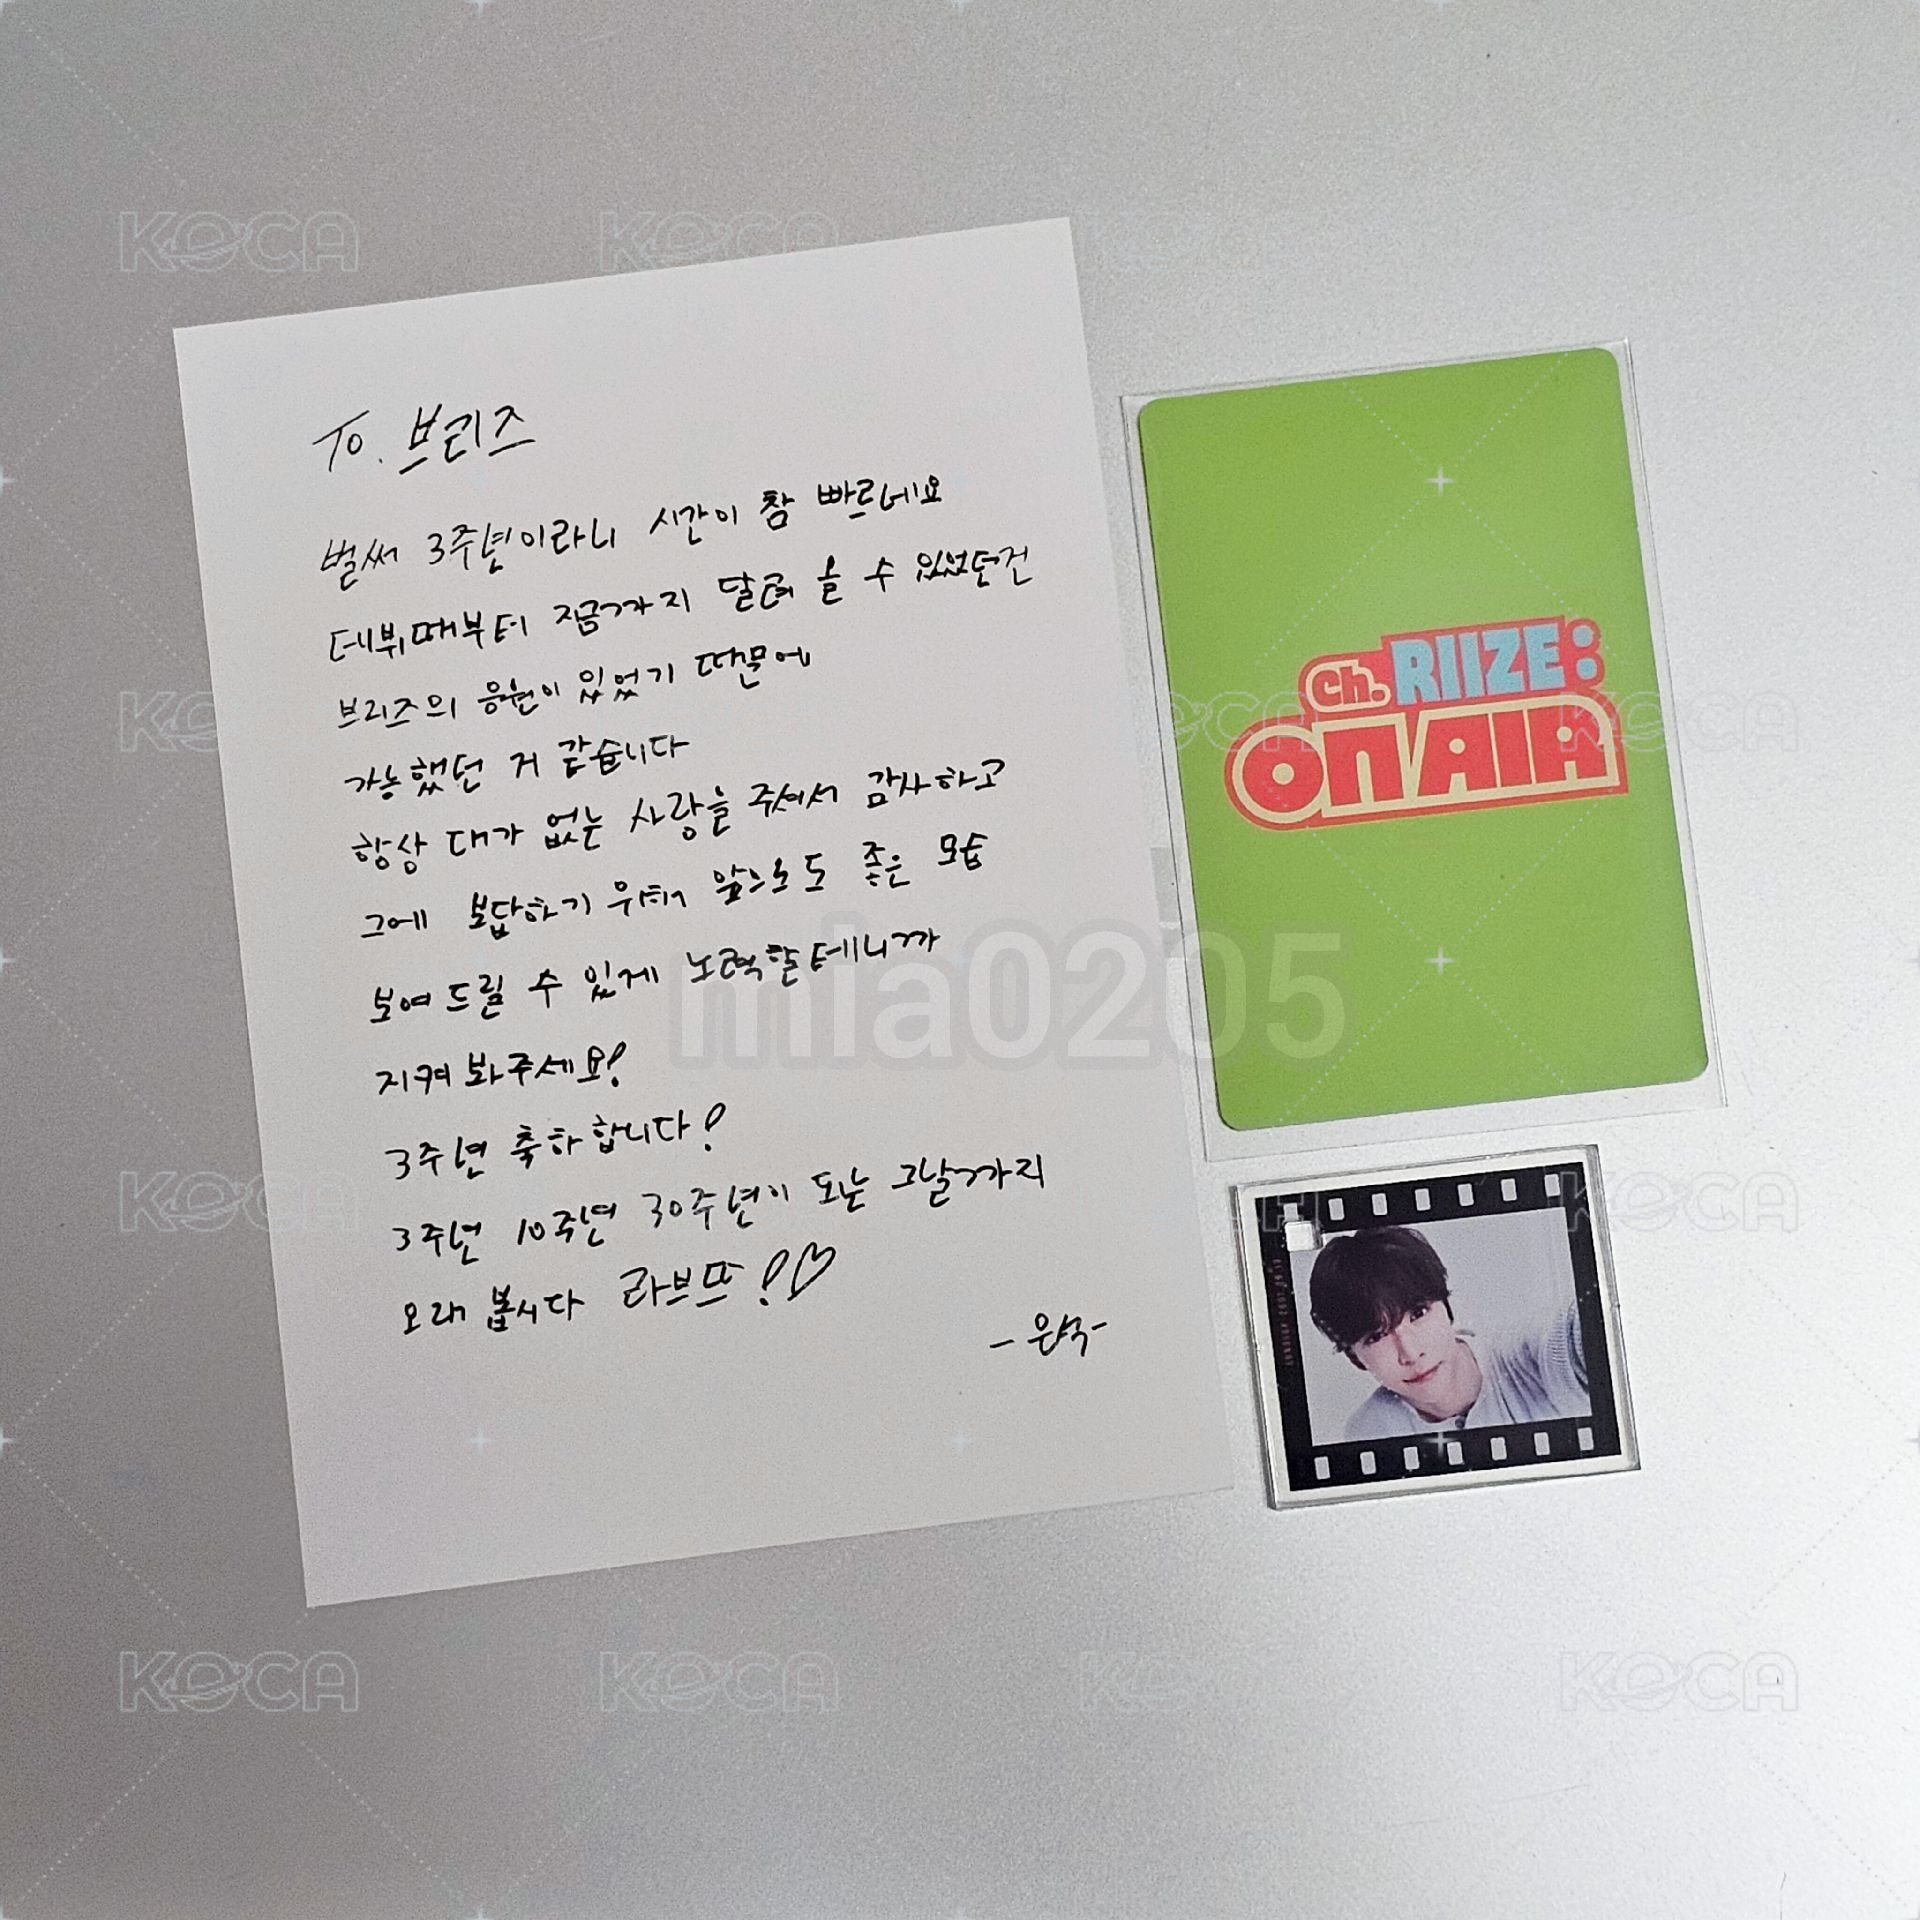 To. 브리즈
벌써 3주년이라니 시간이 참 빠르네요
데뷔때부터 지금까지 달려 올 수 있었던건
브리즈의 응원이 있었기 때문에
가능했던 거 같습니다
항상 대가 없는 사랑을 주셔서 감사하고
그에 보답하기 위해 앞으로도 좋은 모습
보여드릴 수 있게 노력할테니까
지켜봐주세요!
3주년 축하합니다!
3주년 10주년 30주년이 되는 그날까지
오래 봅시다 라브뜨!♡
- 은석 -
ch. RIIZE:
ON AIR
mia0205
KOCA
KOCA
KOCA
KOCA
KOCA
KOCA
KOCA
KOCA
KOCA
KOCA
KOCA
KOCA